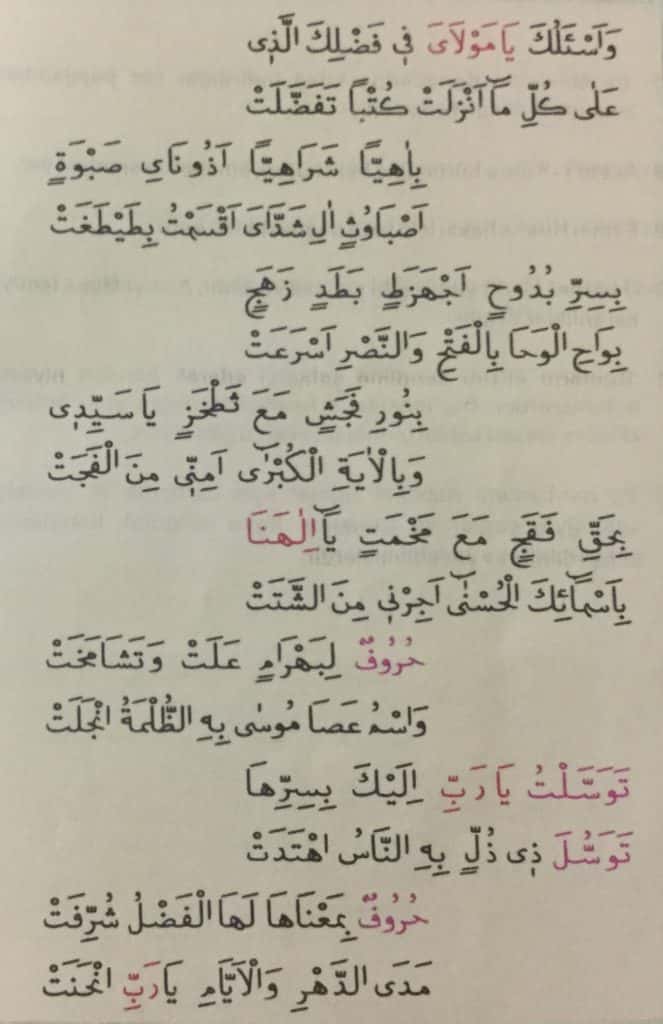 وَاَسْئَلُكَ يَا مَوْلَاىَ فِى فَضْلِكَ الَّذِى
عَلٰى كُلِّ مَٓا اَنْزَلَتْ كُتْبًا تَفَضَّلَتْ
بِاٰهِيًّا شَرَاهِيًّا اَذُونَاىِ صَبْوَةٍ
اَصْبَاوُثٍ اٰلِ شَدَّاىَ اَقْسَمْتُ بِطَيْطَغَتْ
بِسِرِّ بُدُوحٍ اَجْهَزَطٍ بَطَدٍ زَهَجٍ
بِوَاحِ الْوَحَا بِالْفَتْحِ وَالنَّصْرِ اَسْرَعَتْ
بِنُورِ فَجَشٍ مَعَ ثَطْخَزٍ يَا سَيِّدِى
وَبِالْاٰيَةِ الْكُبْرٰى اَمِنِّى مِنَ الْفَجَتْ
بِحَقِّ فَقَجٍ مَعَ مَخْمَتٍ يَٓا اِلٰهَنَا
بِاَسْمَٓائِكَ الْحُسْنٰٓى اَجِرْنِى مِنَ الشَّتَتْ
حُرُوفٌ لِبَهْرَامٍ عَلَتْ وَتَشَامَخَتْ
وَاسْمُ عَصَا مُوسٰى بِهِ الظُّلْمَةُ انْجَلَتْ
تَوَسَّلْتُ يَا رَبِّ اِلَيْكَ بِسِرِّهَا
تَوَسُّلَ ذِى ذُلٍّ بِهِ النَّاسُ اهْتَدَتْ
حُرُوفٌ بِمَعْنَاهَا لَهَا الْفَضْلُ شُرِّفَتْ
مَدَى الدَّهْرِ وَالْاَيَّامِ يَا رَبِّ انْحَنَتْ